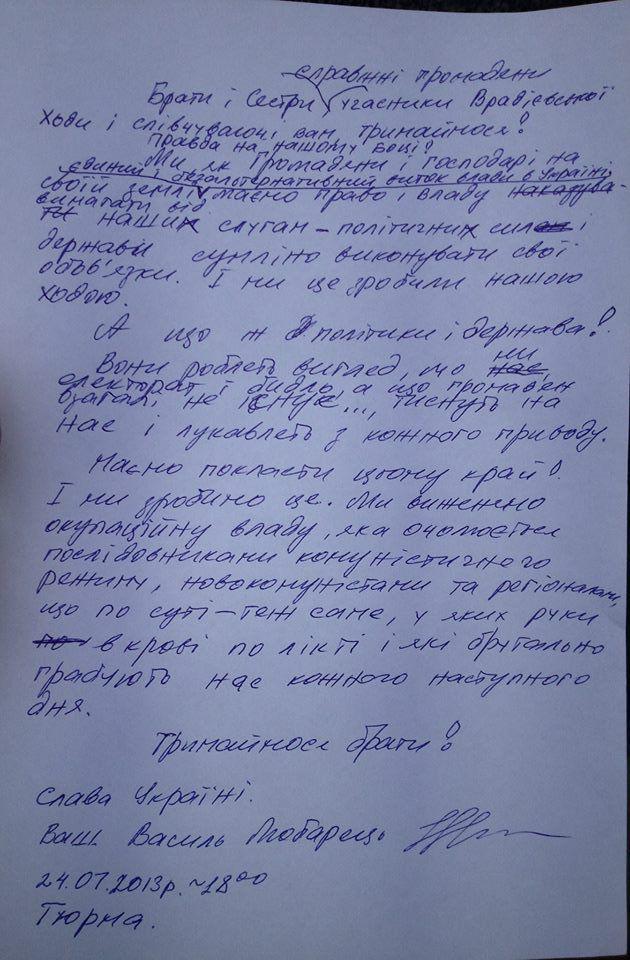 справжні громадяни
Брати і Сестри, учасники Врадіївської
Ходи і співчуваючі вам тримаймося!
Правда на нашому боці!
Ми як Громадяни і господарі на
єдиний і безальтернативний виток влади в Україні
своїй землі маємо право і владу наказува-
вимагати від
ти наших слуган – політичних сил і
держави сумліно виконувати свої
обов'язки. І ми це зробили нашою
ходою.
А що ж політики і держава!
Вони роблять вигляд, що ми нас
електорат і бидло, а що громадян
взагалі не існує..., тиснуть на
нас і лукавлять з кожного приводу.
Маємо покласти цьому край!
І ми зробимо це. Ми виженемо
окупаційну владу, яка очолюється
послідовниками комуністичного
режиму, новокомуністами та регіоналами,
що по суті – теж саме, у яких руки
по в крові по лікті і які брутально
грабують нас кожного наступного
дня.
Тримаймося брати!
Слава Україні.
Ваш Василь Любарець
24.07.2013р. ~18⁰⁰
Тюрма.